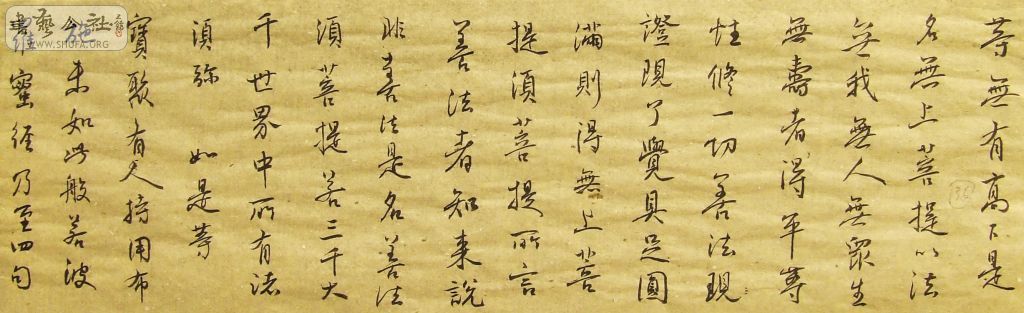 等無有高下是
名無上菩提以法
無我無人無眾生
無壽者得平等
性修一切善法現
證現了覺具足圓
滿則得無上菩
提須菩提所言
善法者如来說
非善法是名善法
須菩提若三千大
千世界中所有諸
須弥如是等
寶聚有人持用布
施未如此般若波
羅蜜經乃至四句
書藝公社
WWW.SHUFA.ORG